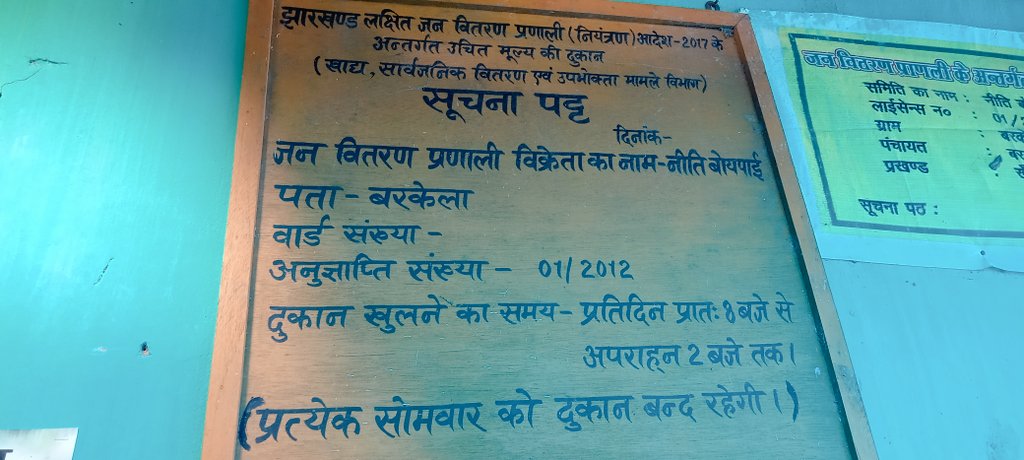 झारखण्ड लक्षित जन वितरण प्रणाली (नियंत्रण) आदेश-2017 के
अन्तर्गत उचित मूल्य की दुकान
(खाद्य, सार्वजनिक वितरण एवं उपभोक्ता मामले विभाग)
सूचना पट्ट
दिनांक-
जन वितरण प्रणाली विक्रेता का नाम-नीति बोयपाई
पता - बरकेला
वार्ड संख्या -
अनुज्ञाप्ति संख्या - 01/2012
दुकान खुलने का समय - प्रतिदिन प्रातः 8 बजे से
अपराह्न 2 बजे तक।
(प्रत्येक सोमवार को दुकान बन्द रहेगी।)
जन वितरण प्रणाली के अन्तर्गत
समिति का नाम : नीति
लाईसेन्स न० : 01/
ग्राम :
पंचायत :
प्रखण्ड :
सूचना पठ :